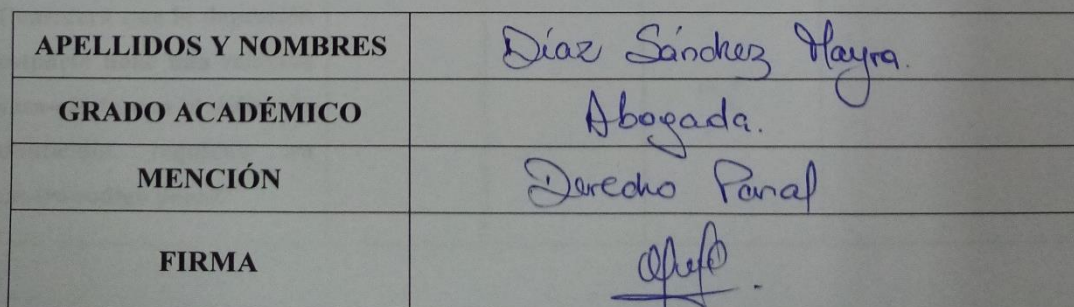 APELLIDOS Y NOMBRES Díaz Sánchez Mayra.
GRADO ACADÉMICO Abogada.
MENCIÓN Derecho Penal
FIRMA